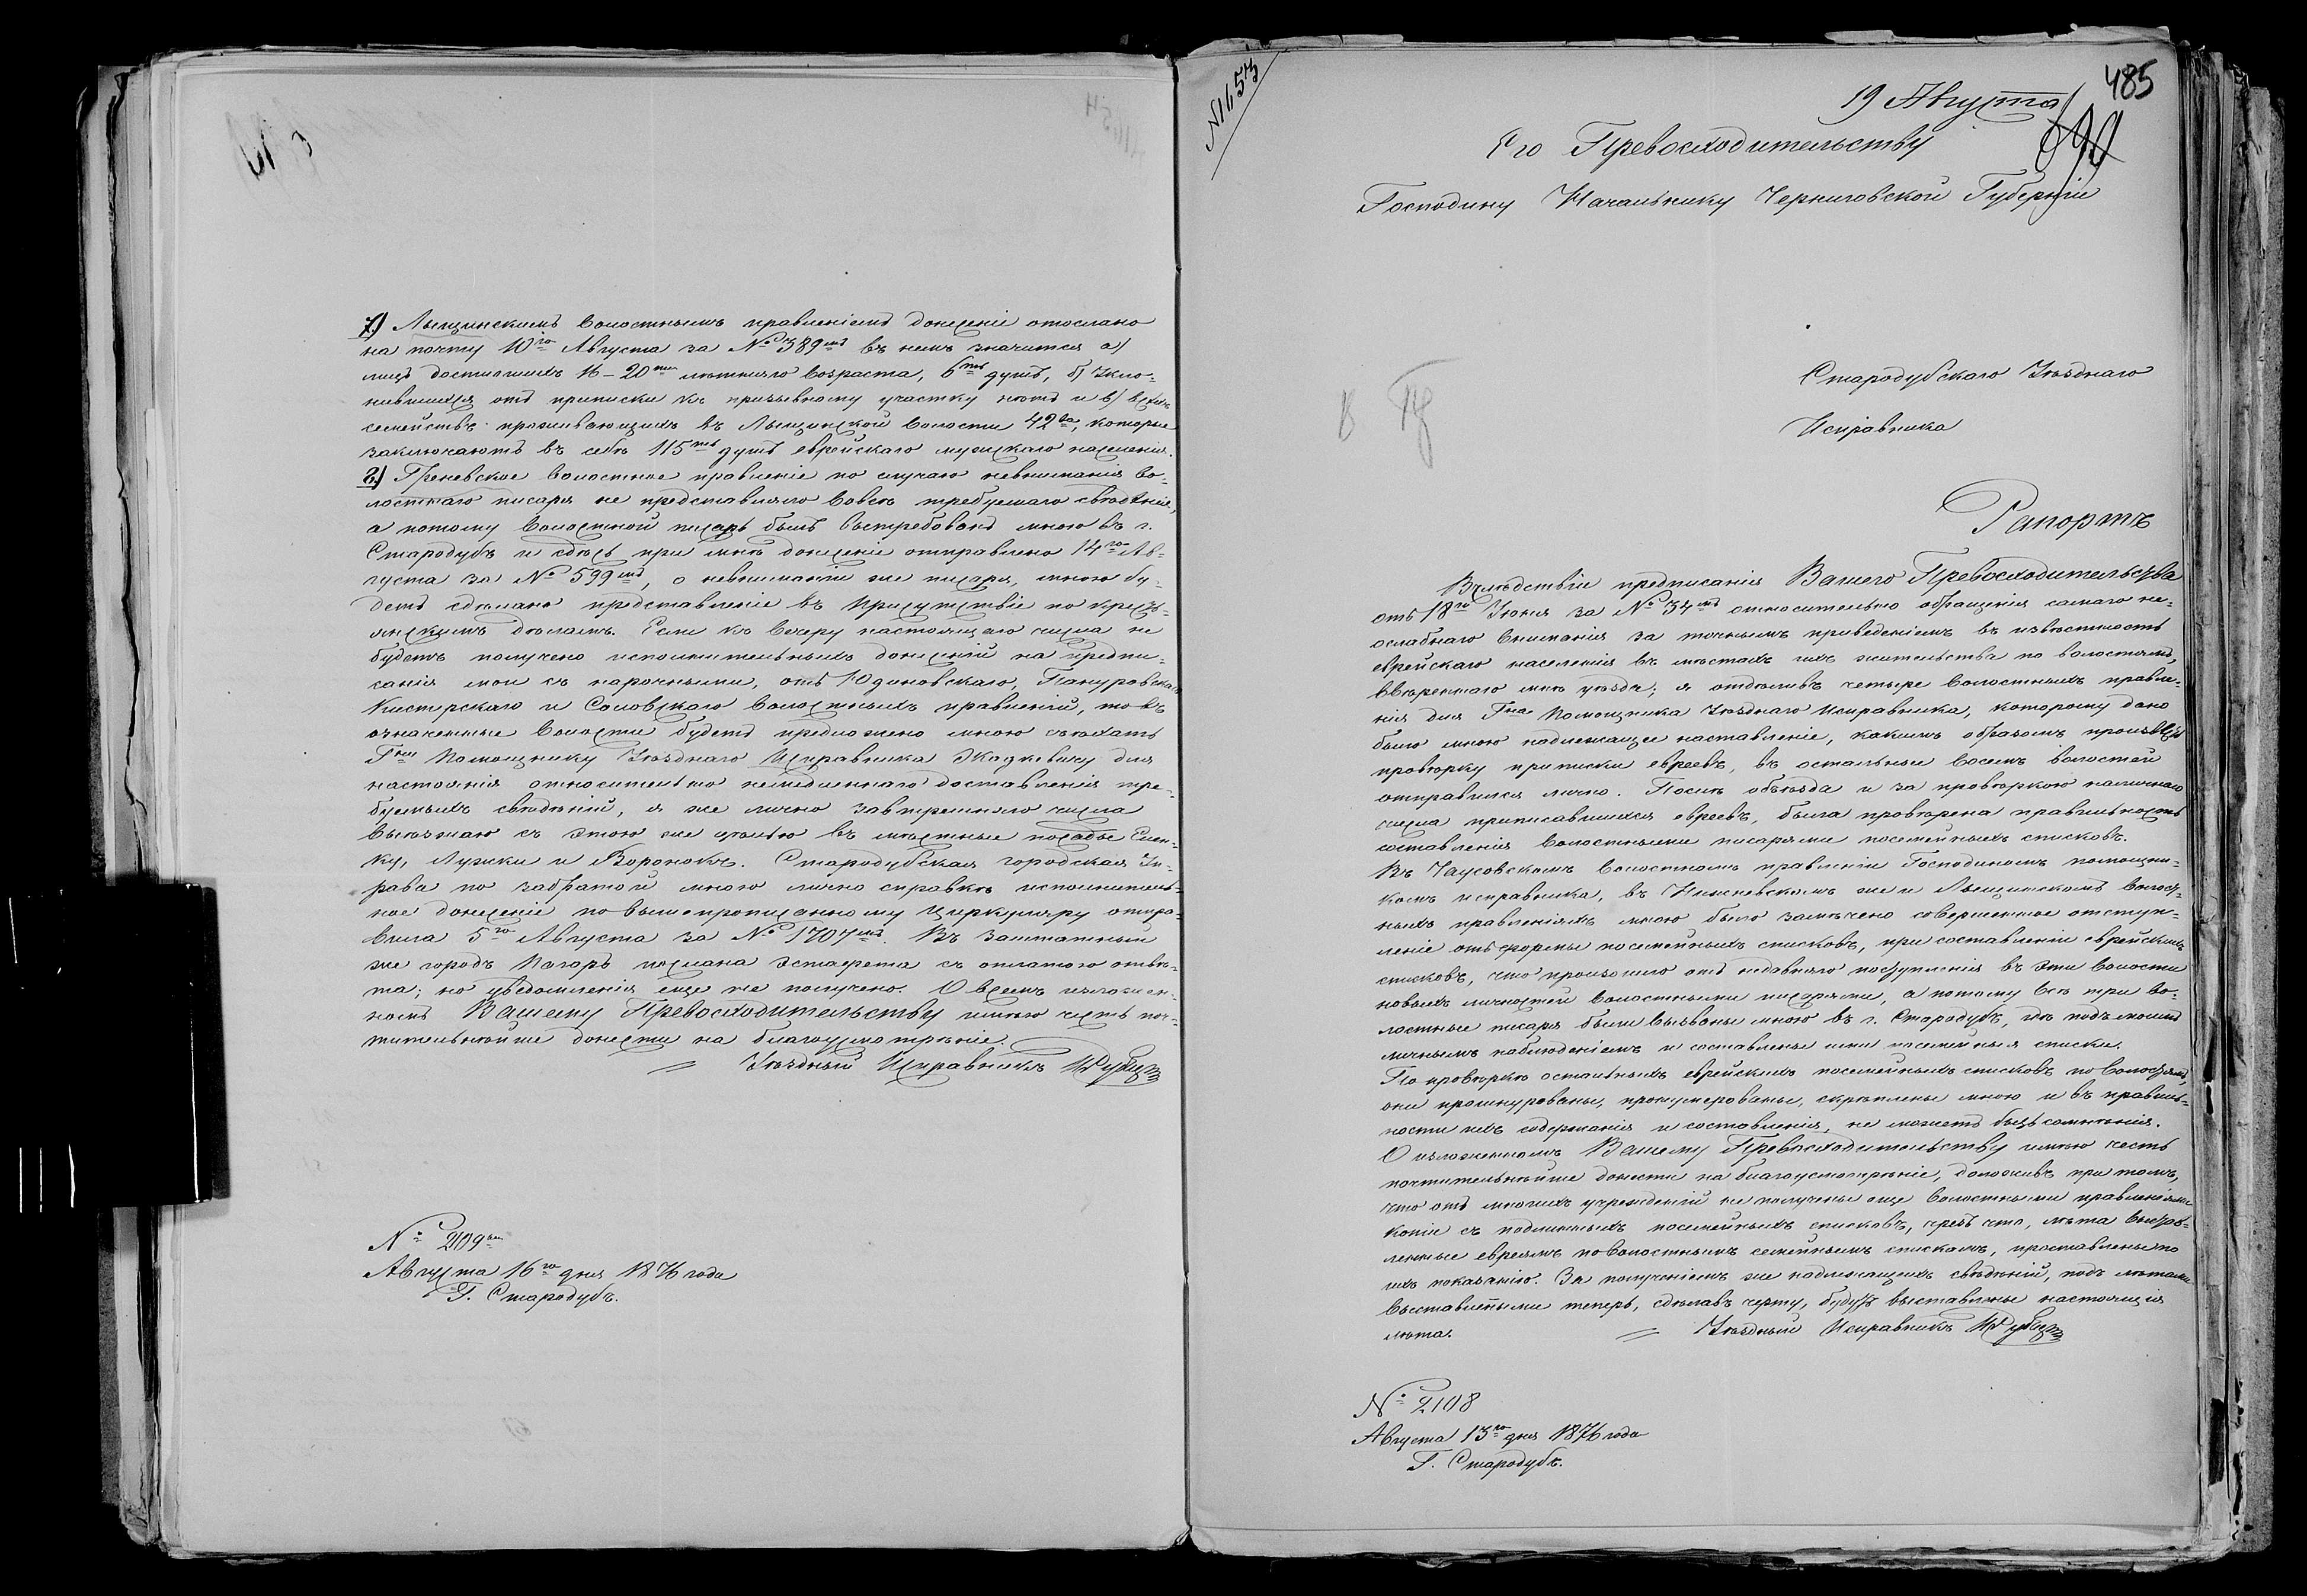 7.) Лыщинскимъ волостнымъ правленіемъ донесеніе отослано
на почту 10го Августа за № 389мъ въ немъ значится а)
лицъ достигшихъ 16-20ти лѣтняго возраста, 6ть душъ, б) Укло-
нившихся отъ приписки къ призывному участку нѣтъ и в) всѣхъ
семействъ проживающихъ въ Лыщинской волости 42ва, которые
заключаютъ въ себѣ 115ть душъ еврейскаго мужскаго населенія.
8.) Гриневское волостное правленіе по случаю невниманія во-
лостнаго писаря не представляло вовсе требуемаго свѣдѣнія,
а потому волостной писарь былъ вытребованъ мною въ г.
Стародубъ и сдѣсь при мнѣ донесеніе отправлено 14го Ав-
густа за № 599мъ, о невниманіи же писаря, мною бу-
детъ сдѣлано представленіе въ Присутствіе по кресть-
янскимъ дѣламъ. Если къ вечеру настоящаго числа не
будетъ получено исполнительныхъ донесеній на предпи-
санія мои съ нарочными, отъ Юдиновскаго, Пануровскаго
Кистерскаго и Соловскаго волостныхъ правленій, то въ
означенные волости будетъ предложено мною съѣхать
Гну Помощнику Уѣзднаго Исправника Жадкевичу для
настоянія относительно немедленнаго доставленія тре-
буемыхъ свѣдѣній, я же лично завтрешняго числа
выѣзжаю съ этою же цѣлью въ мѣстные посады Елен-
ку, Лужки и Воронокъ. Стародубская городская Уп-
рава по забратой мною лично справкѣ исполнитель-
ное донесеніе по вышепрописанному циркуляру отпра-
вила 5го Августа за № 1707мъ. Въ заштатный
же городъ Погаръ послана эстафета съ оплатою отвѣ-
та; но увѣдомленія еще не получено. О всемъ изложен-
номъ Вашему Превосходительству имѣю честь поч-
тительнѣйше донести на благоусмотрѣніе.
Уѣздный Исправникъ
№ 2109
Августа 16го дня 1876 года
Г. Стародубъ.
№ 1653
485
19 Августа
Его Превосходительству
Господину Начальнику Черниговской Губерніи
Стародубскаго Уѣзднаго
Исправника
Рапортъ
Вслѣдствіи предписанія Вашего Превосходительства
отъ 18го Іюня за № 34мъ относительно обращенія самаго не-
ослабнаго вниманія за точнымъ приведеніемъ въ извѣстность
еврейскаго населенія въ мѣстахъ ихъ жительства по волостямъ,
ввѣреннаго мнѣ уѣзда; я отдѣливъ четыре волостныхъ правле-
нія для Гна Помощника Уѣзднаго Исправника, которому дано
было мною надлежащее наставленіе, какимъ образомъ произвесть
провѣрку приписки евреевъ, въ остальные восемь волостей
отправился лично. Послѣ объѣзда и за провѣркою наличнаго
числа приписавшихся евреевъ, была провѣрена правильность
составленія волостными писарями посемейныхъ списковъ.
Въ Чаусовскомъ волостномъ правленіи Господиномъ помощни-
комъ исправника, въ Нижневскомъ же и Лыщинскомъ волост-
ныхъ правленіяхъ мною было замѣчено совершенное отступ-
леніе отъ формы посемейныхъ списковъ, при составленіи еврейскихъ
списковъ, что произошло отъ недавняго поступленія въ эти волости
новыхъ личностей волостными писарями, а потому всѣ три во-
лостные писаря были вызваны мною въ г. Стародубъ, гдѣ подъ моимъ
личнымъ наблюденіемъ и составлены ими посемейныя списки.
По провѣркѣ остальныхъ еврейскихъ посемейныхъ списковъ по волостямъ,
они прошнурованы, пронумерованы, скрѣплены мною и въ правиль-
ности ихъ содержанія и составленія, не можетъ быть сомнѣнія.
О изложенномъ Вашему Превосходительству имѣю честь
почтительнѣйше донести на благоусмотрѣніе, доложивъ при томъ,
что отъ многихъ учрежденій не получены еще волостными правленіями
копіи съ подлинныхъ посемейныхъ списковъ, чрезъ что, лѣта выстав-
ленные евреямъ по волостнымъ семейнымъ спискамъ, проставлены по
ихъ показанію. За полученіемъ же надлежащихъ свѣдѣній, подъ лѣтами
выставлеными теперь, сдѣлавъ черту, будутъ выставлены настоящія
лѣта.
Уѣздный Исправникъ
№ 2108
Августа 13го дня 1876 года
Г. Стародубъ.